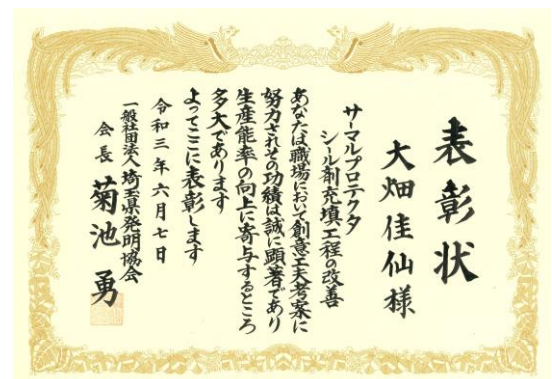 表彰状
大畑佳仙様
サーマルプロテクタ
シール剤充填工程の改善
あなたは職場において創意工夫考案に
努力されその功績は誠に顕著であり
生産能率の向上に寄与するところ
多大であります
よってここに表彰します
令和三年六月七日
一般社団法人埼玉県発明協会
会長 菊池勇